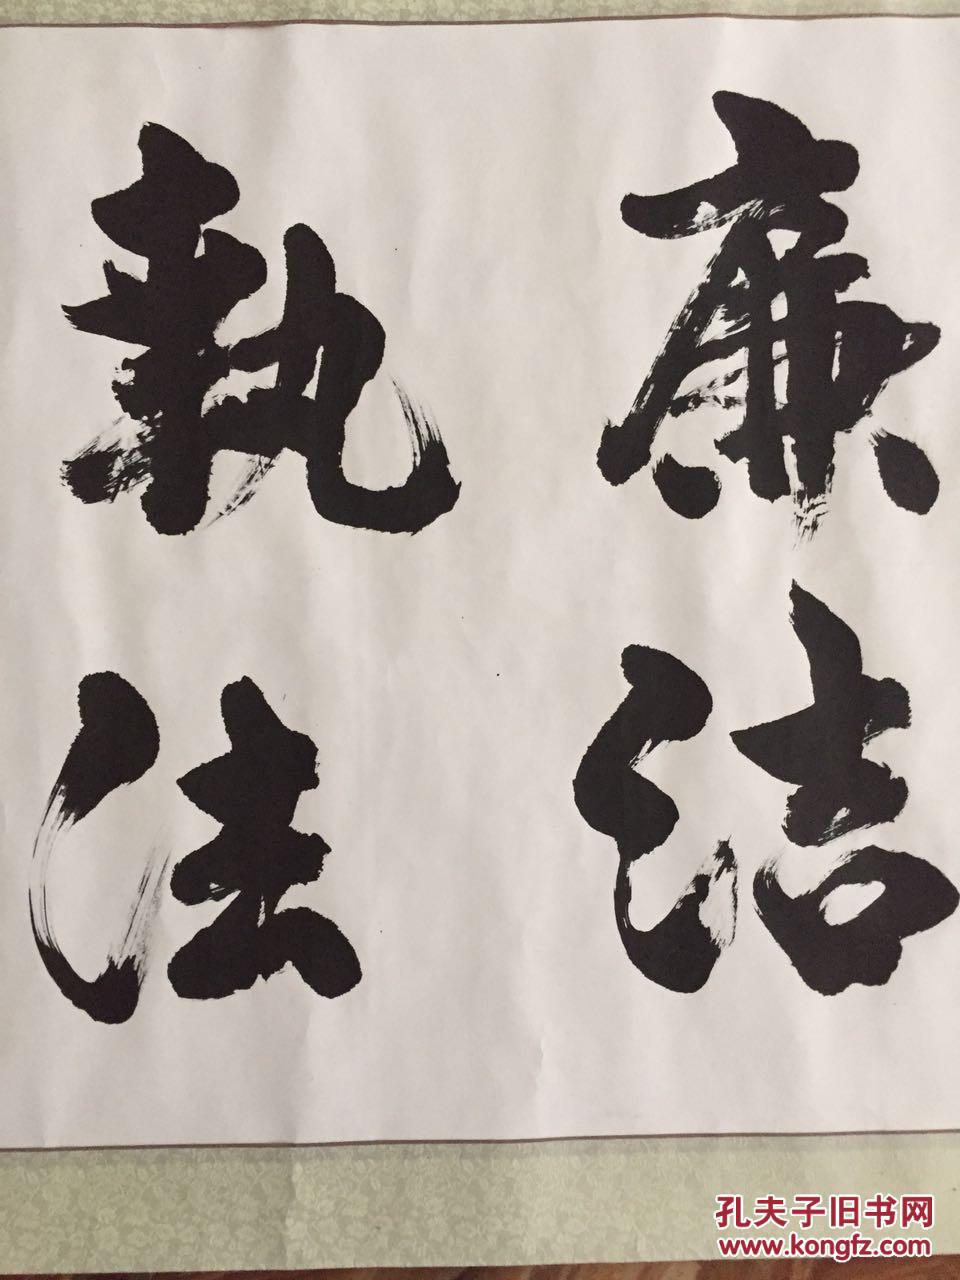 廉洁
執法
孔夫子旧书网
www.kongfz.com